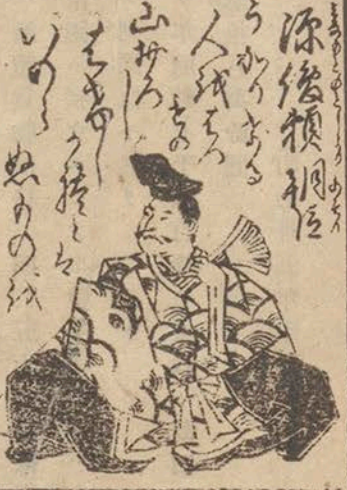 源俊頼朝臣
うかりける
人をはつ
せの
山おろし
はげし
かれとは
いのら
ぬものを